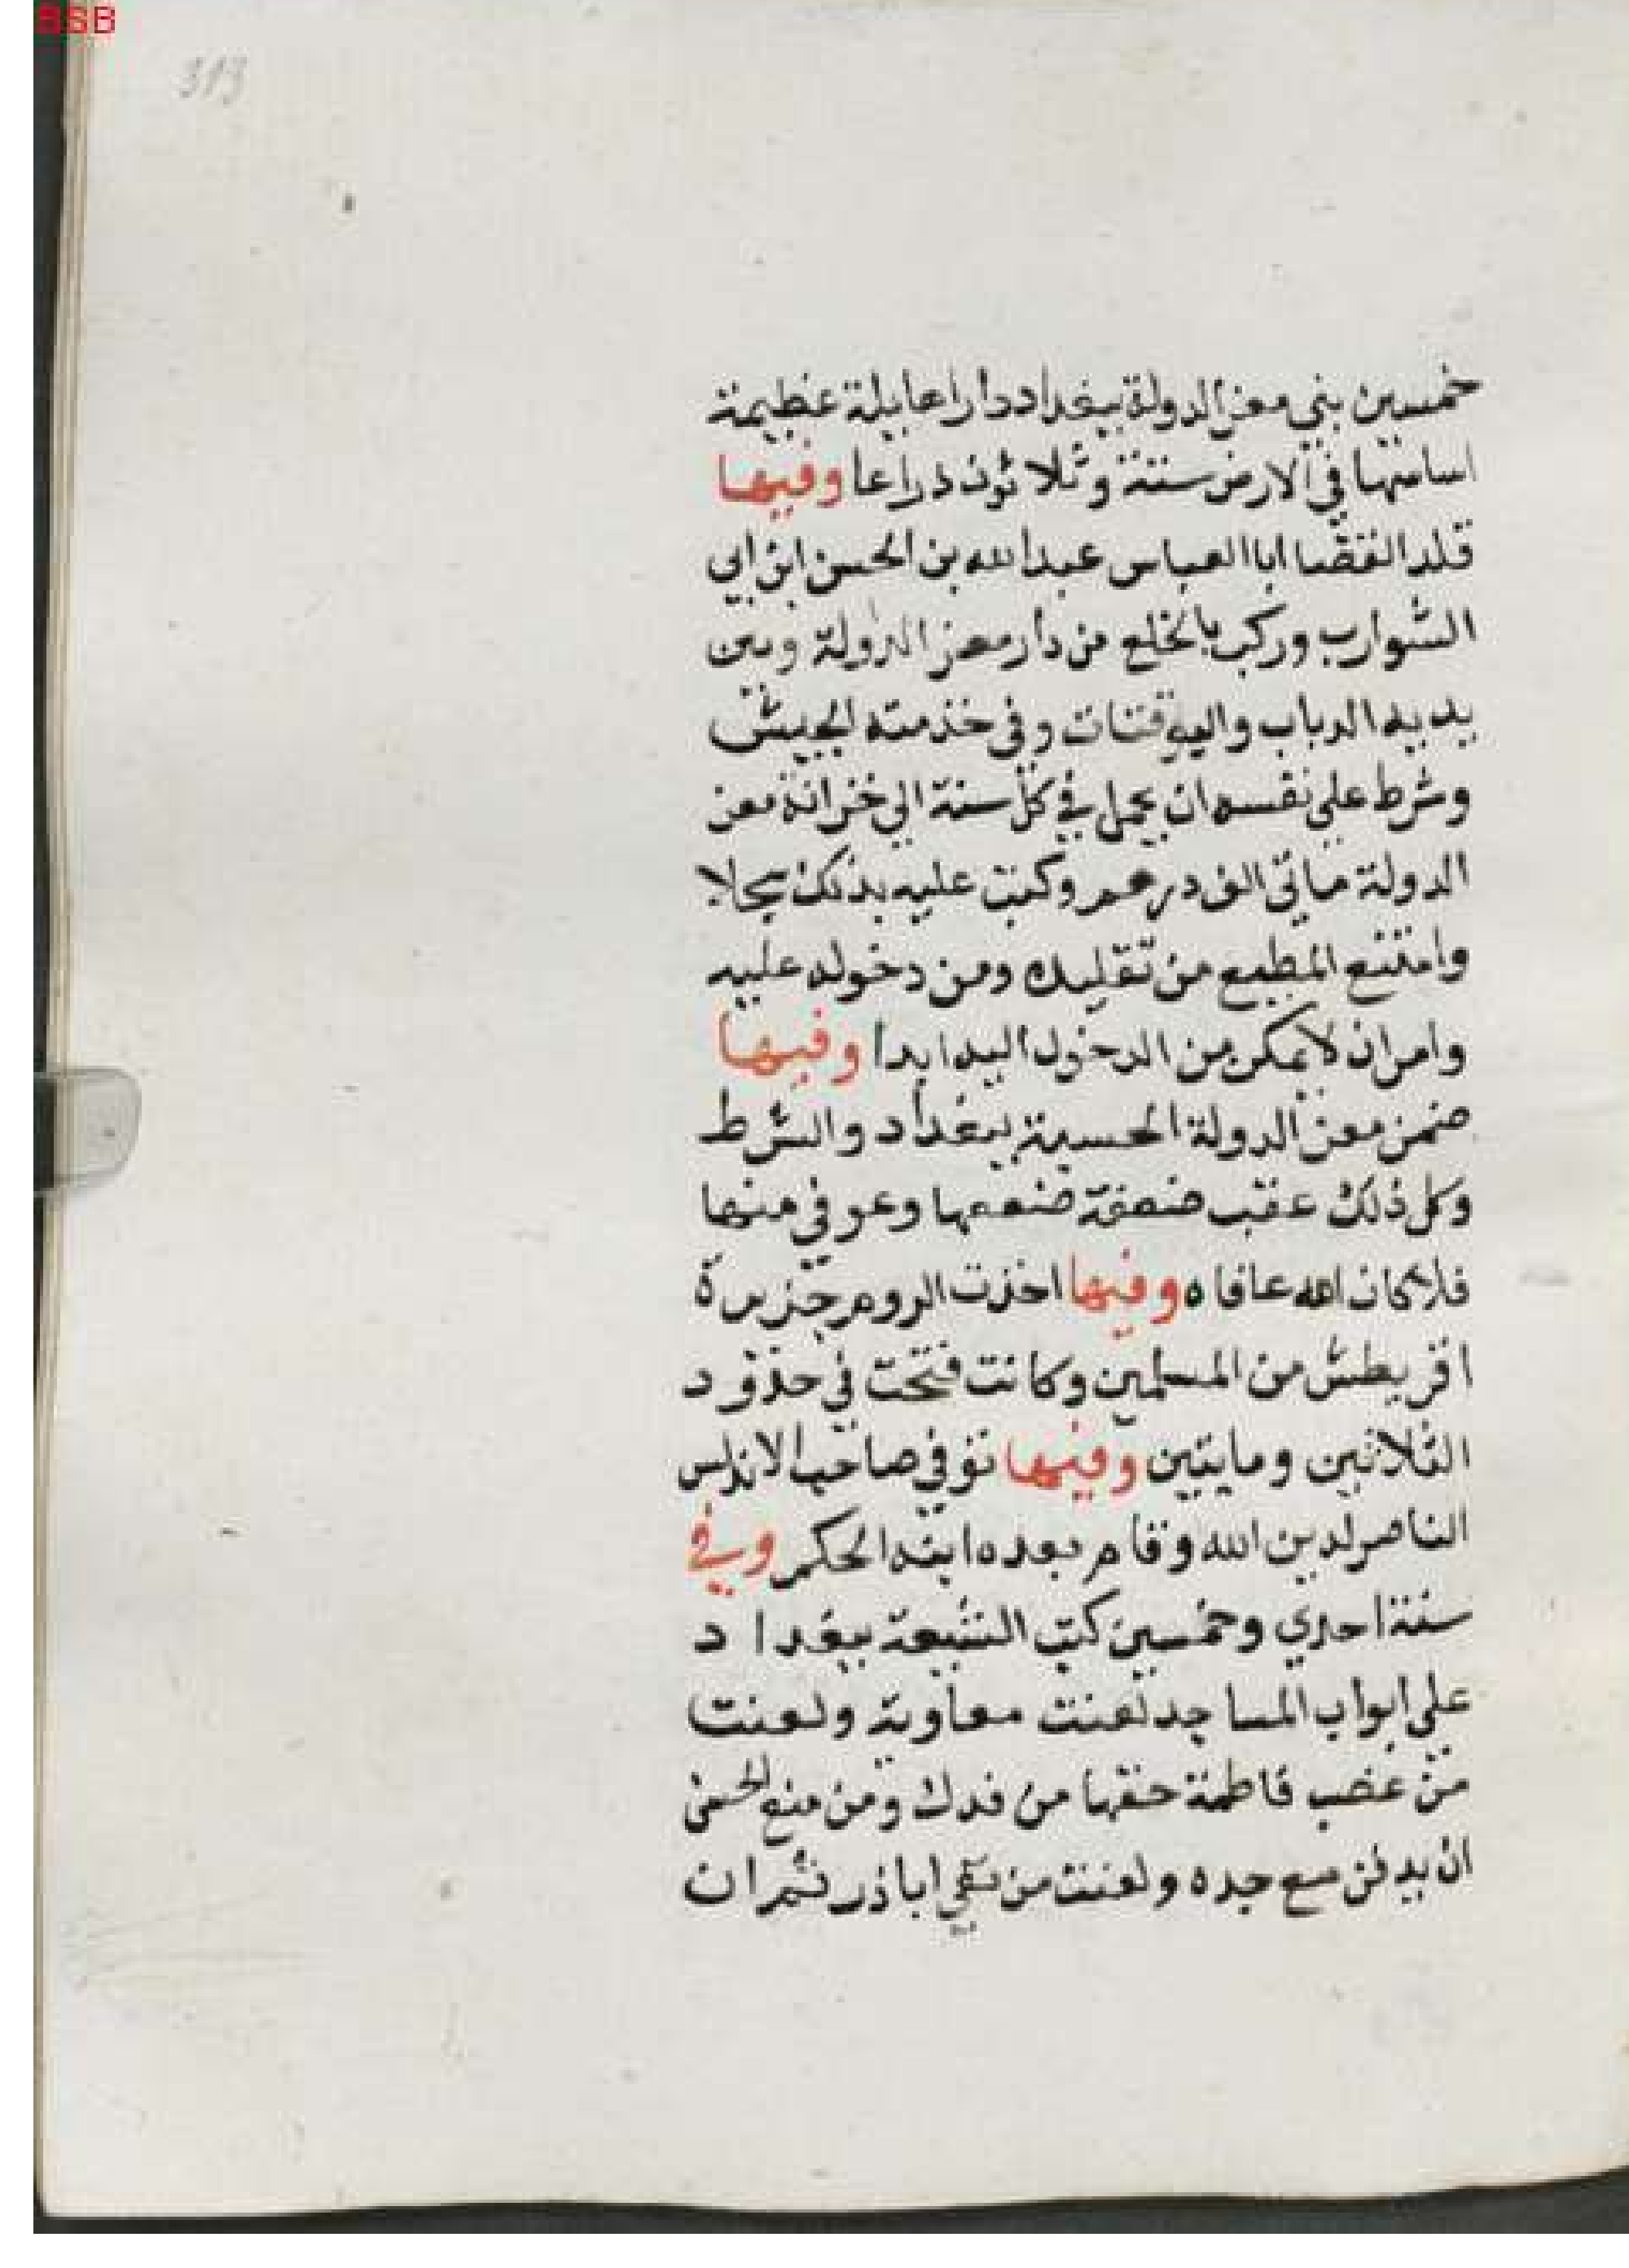 BSB
313
خمسين بني معز الدولة ببغداد دارا هايلة عظيمة
اساسها في الارض ستة وثلاثون ذراعا وفيها
قلد القضا ابا العباس عبد الله بن الحسن ابن ابي
الشوارب وركب بالخلع من دار معز الدولة وبين
يديه الدباب والبوقات وفي خذمته الجيش
وشرط على نفسه ان يحمل في كل سنة الي خزانة معز
الدولة مائي الف درهم وكتب عليه بذلك سجلا
وامتنع المطيع من تقليده ومن دخوله عليه
وامر ان لا يمكن من الدخول اليه ابدا وفيها
ضمن معز الدولة الحسبة ببغداد والشرط
وكل ذلك عقب ضعفة ضعفها وعوفي منها
فلا كان الله عافاه وفيها اخذت الروم جزيرة
اقريطش من المسلمين وكانت فتحت في حذود
الثلاثين ومايتين وفيها توفي صاحب الاندلس
الناصر لدين الله وقام بعده ابنه الحكم وفي
سنة احدي وخمسين كتب الشيعة ببغداد
على ابواب المساجد لعنت معاوية ولعنت
من غصب فاطمة حقها من فدك ومن منع الحسن
ان يدفن مع جده ولعنت من نفي ابا ذر ثم ان